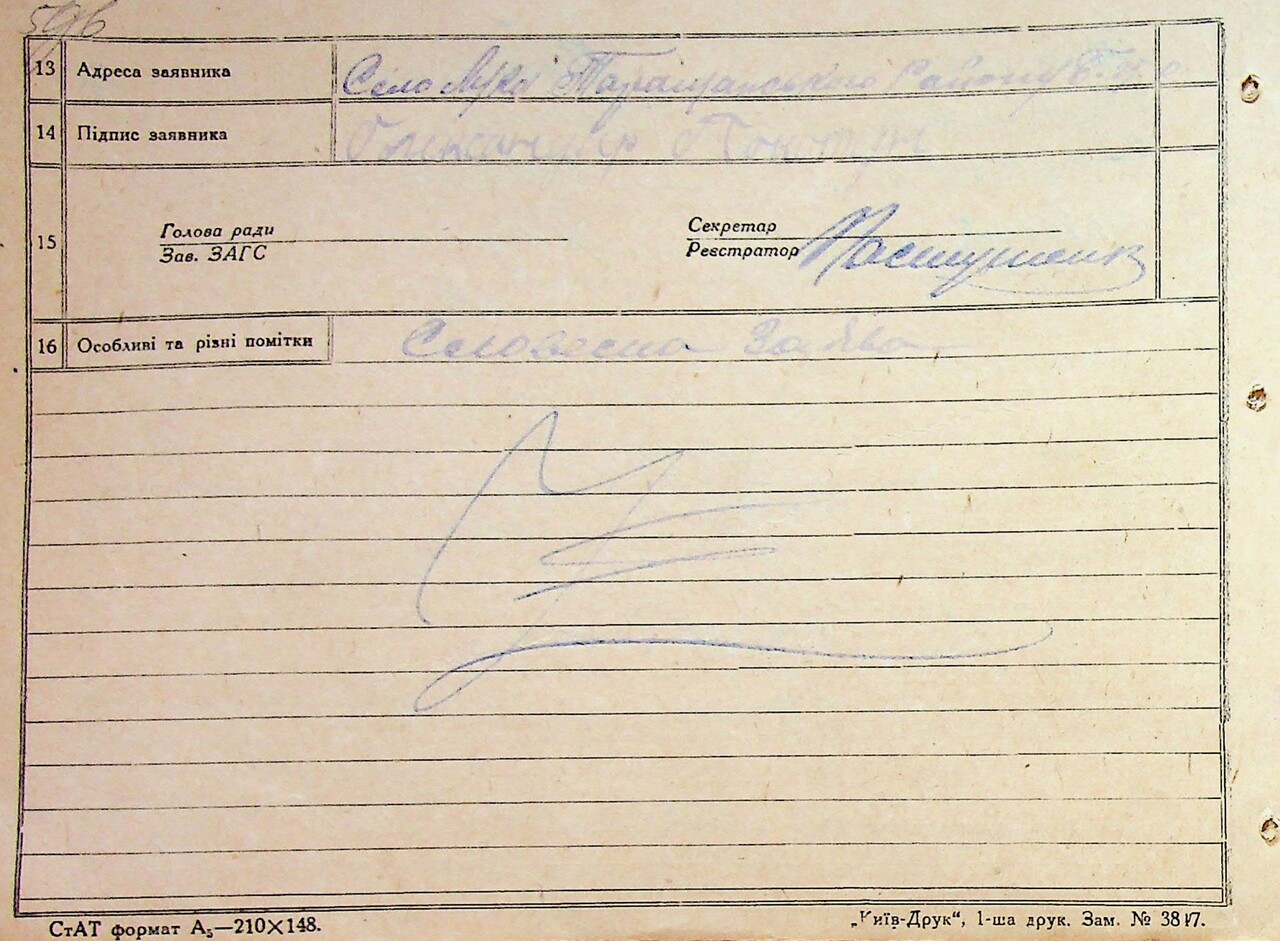 596
13 Адреса заявника Село Лука Таращанського Району
14 Підпис заявника Олександер
15 Голова ради Секретар
Зав. ЗАГС Реєстратор Пастушенк
16 Особливі та різні помітки Словесна Заява
СтАТ формат А₅—210×148. „Київ-Друк“, 1-ша друк. Зам. № 3817.